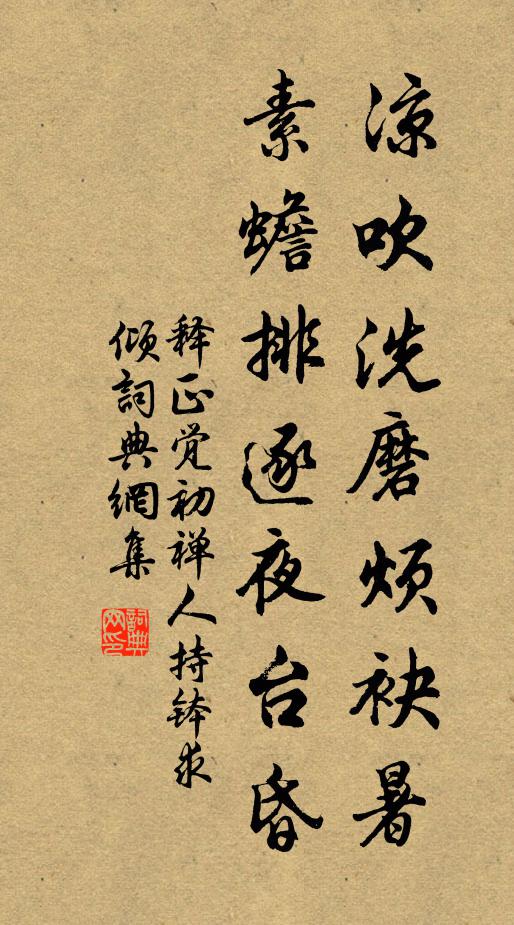 凉吹洗磨烦袂暑
素蟾排逐夜台昏
释正觉初禅人持钵求
倾词典網集
詞典網印